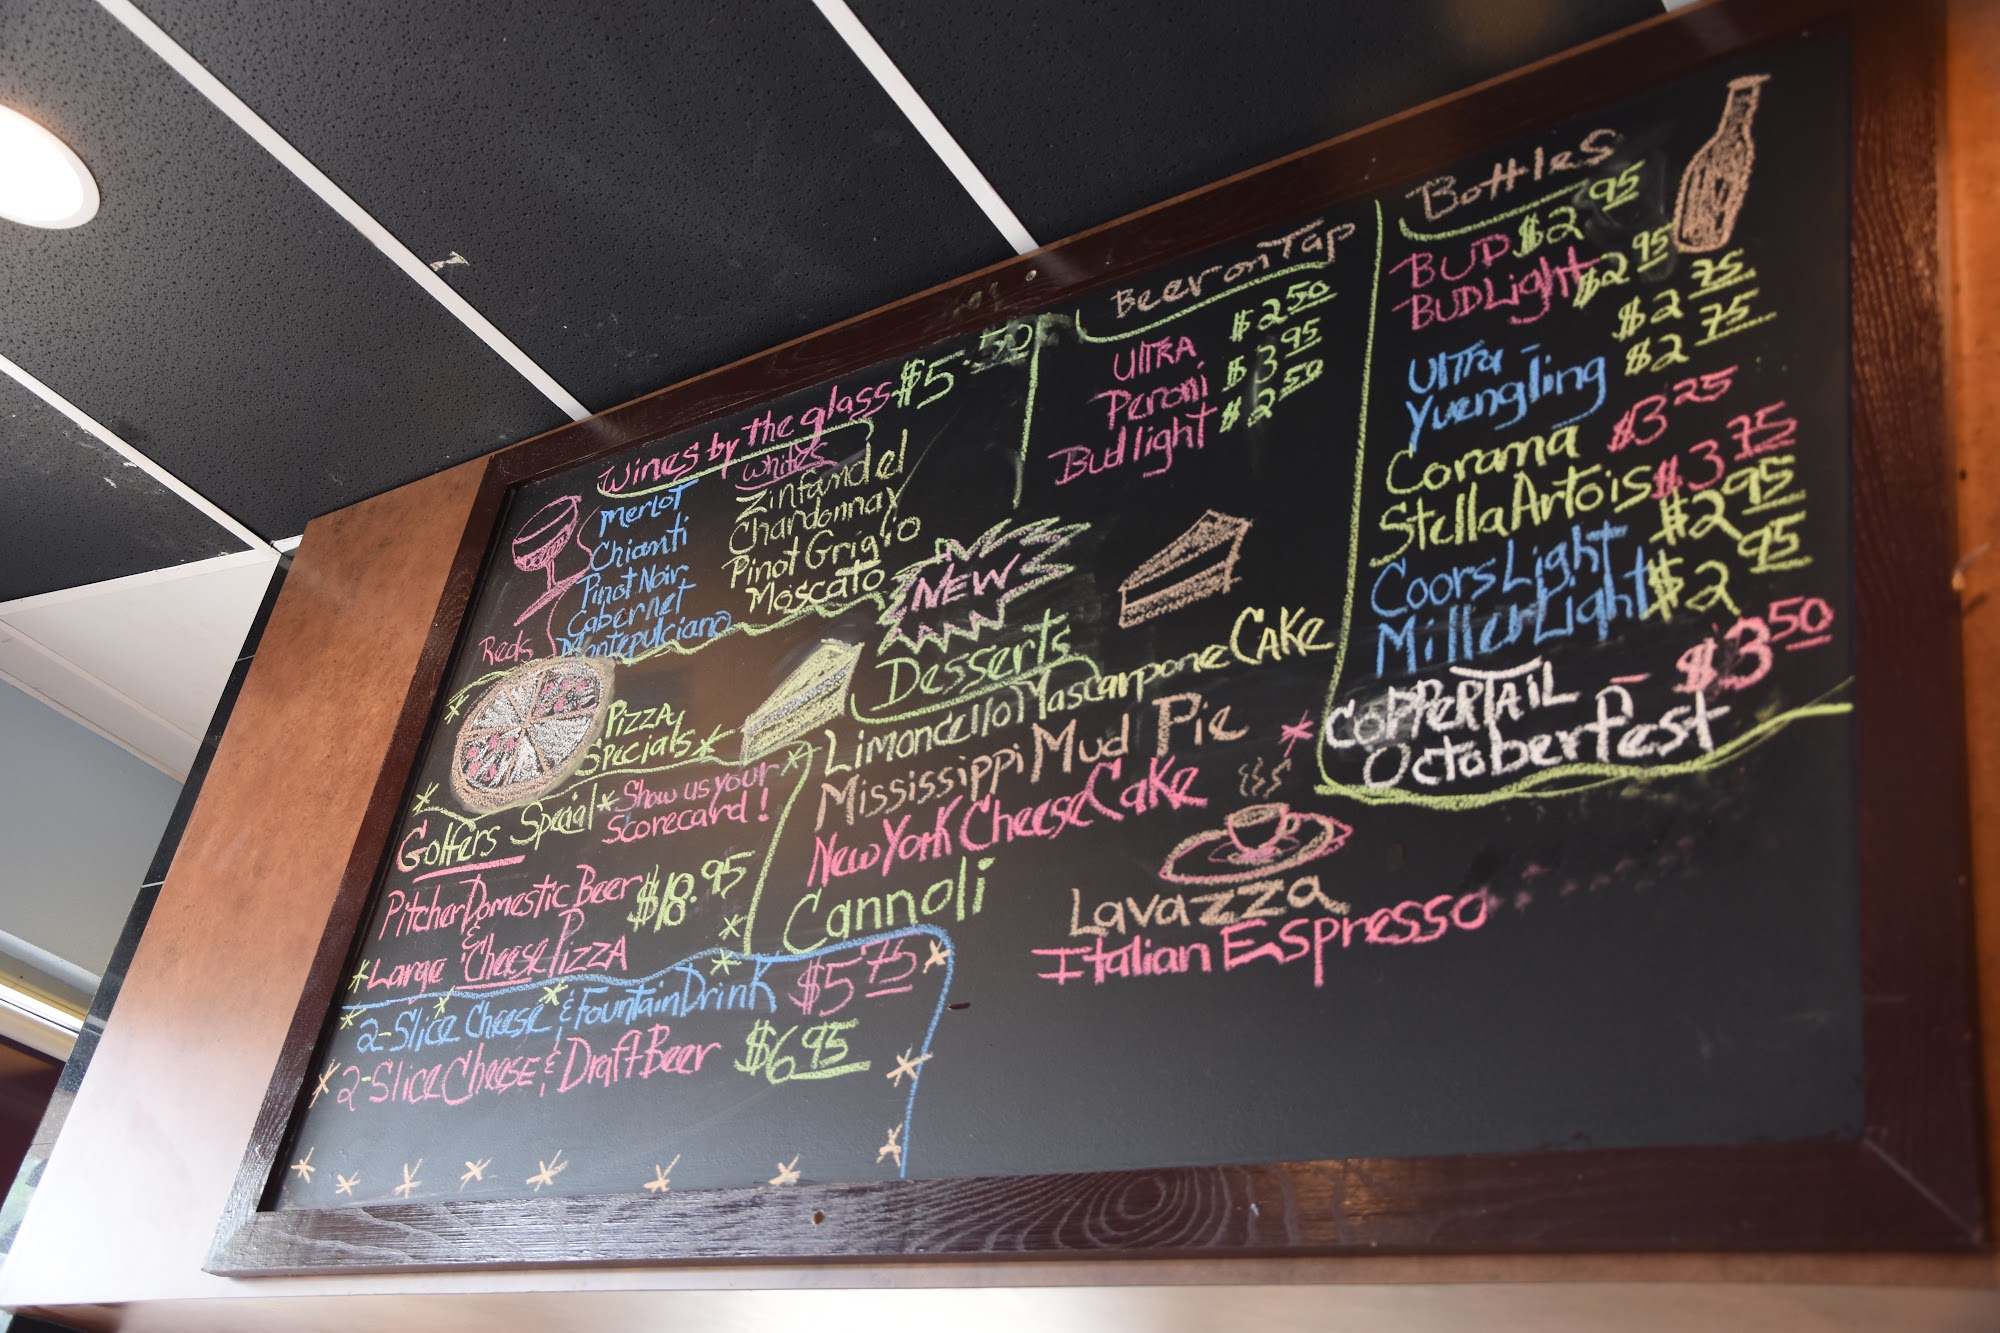 Wines by the glass $5.50
Whites
Merlot
Chianti
Pinot Noir
Cabernet
Montepulciano
Reds
Zinfandel
Chardonnay
Pinot Grigio
Moscato
Beer on Tap
Ultra $2 50
Peroni $3 95
Bud light $2 50
Bottles
BUD $2 95
BUD Light $2 95
Ultra - $2 75
Yuengling $2 75
Corama $3 25
Stella Artois $3 75
Coors Light $2 95
Miller Light $2 95
COPPERTAIL - $3 50
OctoberFest
NEW
Desserts
Limoncello Mascarpone CAKE
Mississippi Mud Pie
New York Cheese Cake
Cannoli
Lavazza
Italian Espresso
Pizza
Specials
Golfers Special * Show us your
Scorecard!
Pitcher Domestic Beer $18.95
&
Large "Cheese Pizza
2-Slice Cheese & Fountain Drink $5 75
2-Slice Cheese & Draft Beer $6 95